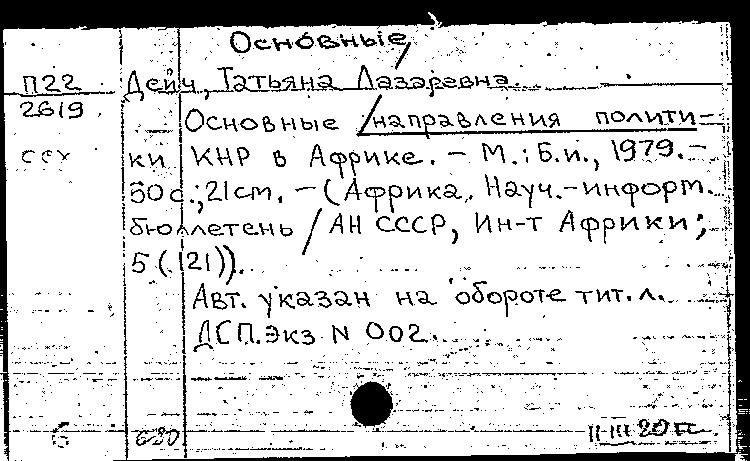 Основные
П22 Дейч, Татьяна Лазаревна.
2619
Основные /направления полити-
ки КНР в Африке. – М.: Б.и., 1979. –
50 с.; 21 см. – (Африка. Науч.-информ.
бюллетень / АН СССР, Ин-т Африки;
5 (121)).
Авт. указан на обороте тит. л.
ДСП. Экз N 002.
6 680